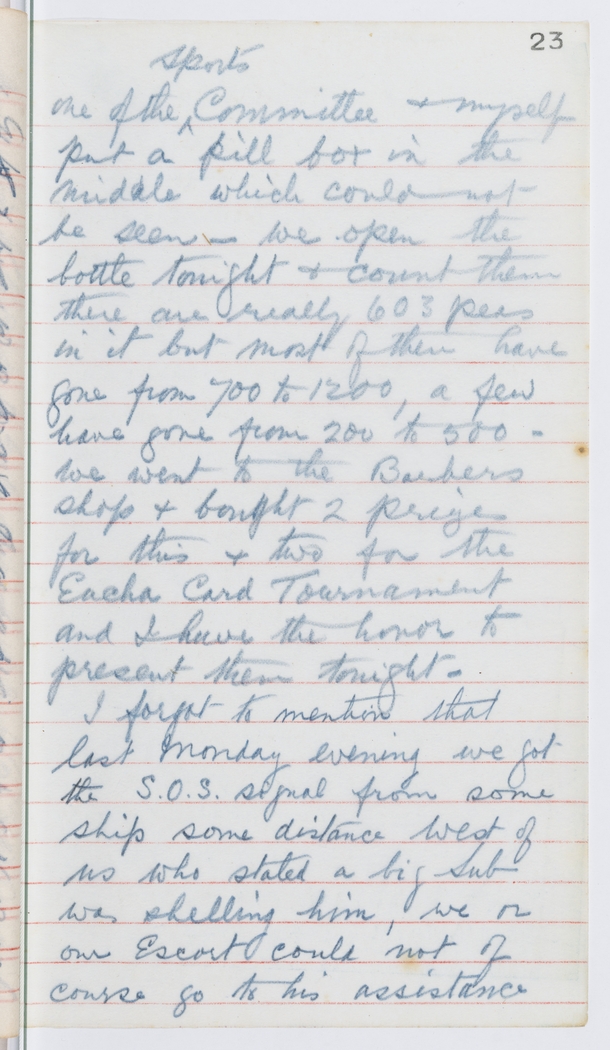 23
Sports
one of the ^ Committee + myself
put a pill box in the
middle which could not
be seen – we open the
bottle tonight + count them
there are really 603 peas
in it but most of them have
gone from 700 to 1200, a few
have gone from 200 to 500 –
we went to the Barbers
shop + bought 2 prizes
for this + two for the
Eucha Card Tournament
and I have the honor to
present them tonight –
I forgot to mention that
last Monday evening we got
the S.O.S. signal from some
ship some distance West of
us who stated a big Sub
was shelling him, we or
our Escort could not of
course go to his assistance